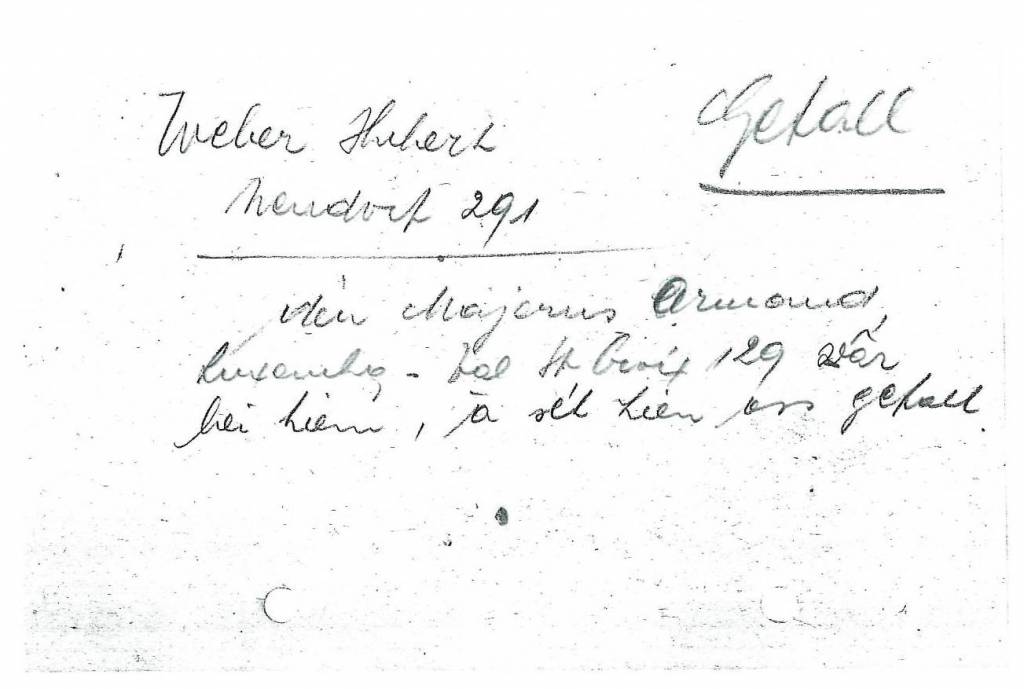 Weber Hubert
Gefall
Neudorf 291
den Majerus Armand,
Luxembg - Val St Croix 129 wôr
bei hiem, a sét hien ass gefall.